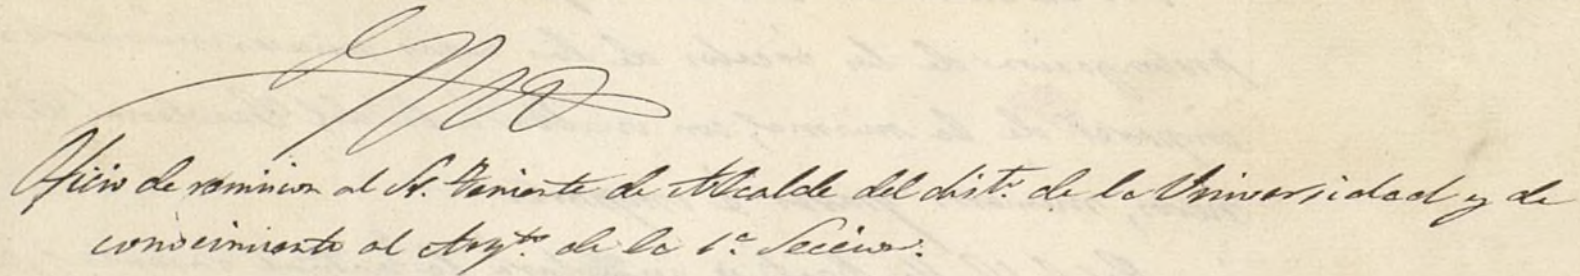 Oficio de remision al Sr. Teniente de Alcalde del distº de la Universidad y de
conocimiento al Arqtº de la 1ª Seccion.